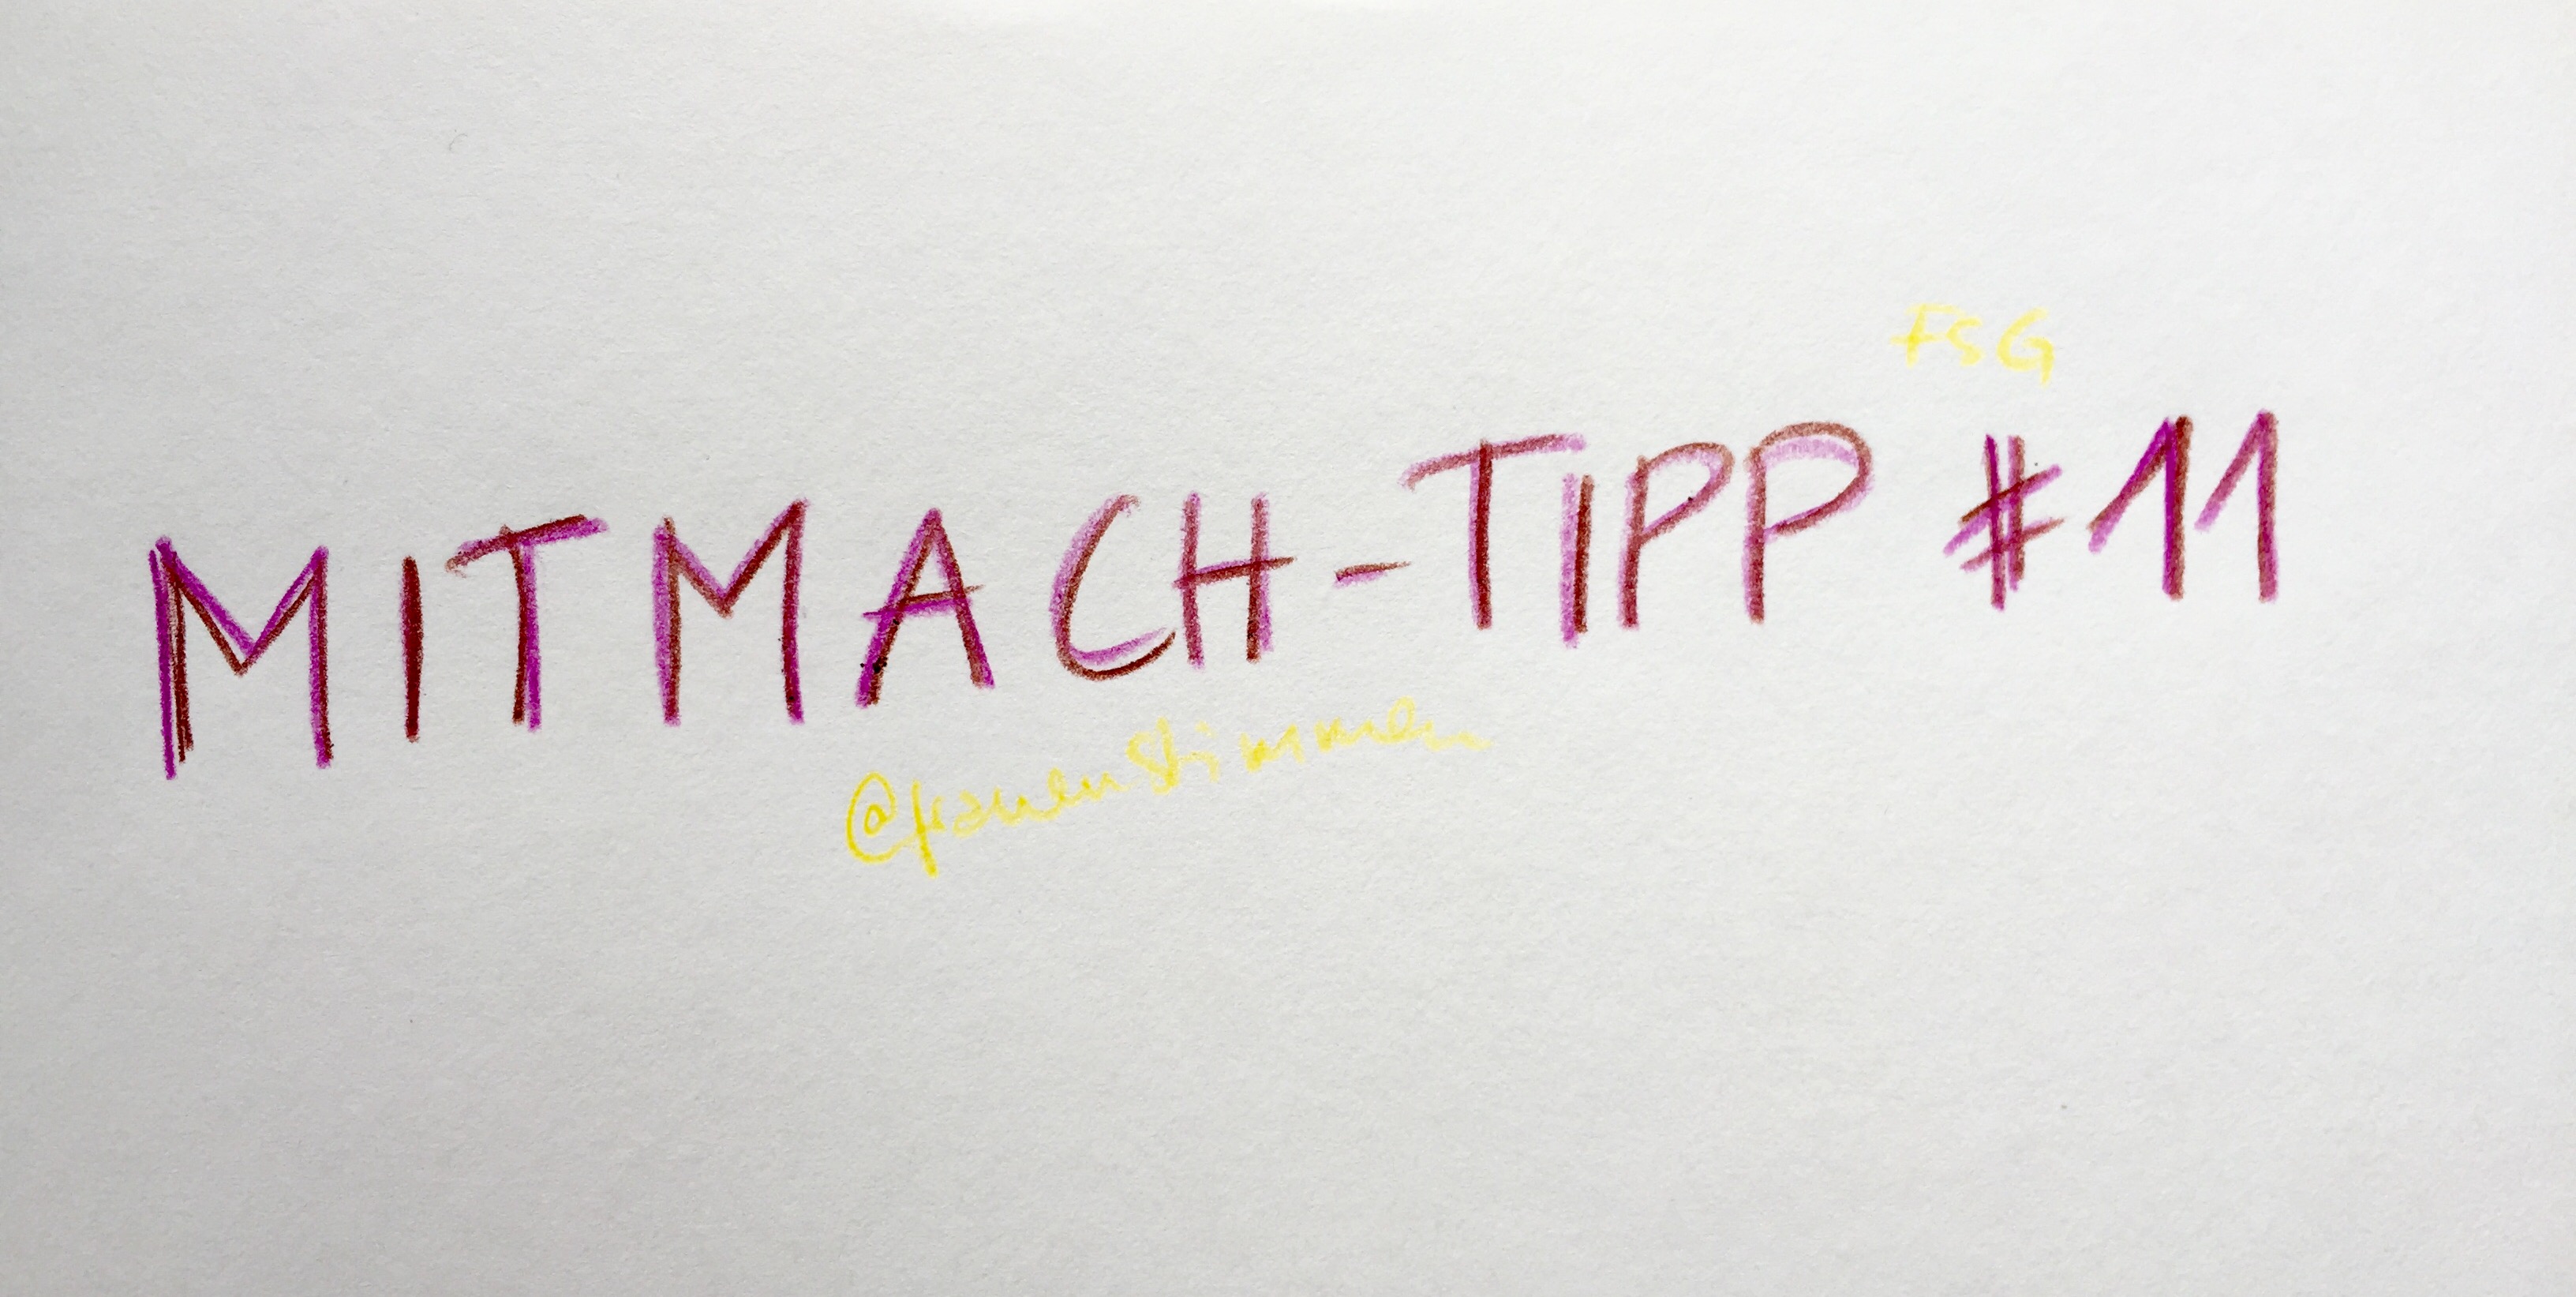 FSG
MITMACH-TIPP #11
@frauenstimmen